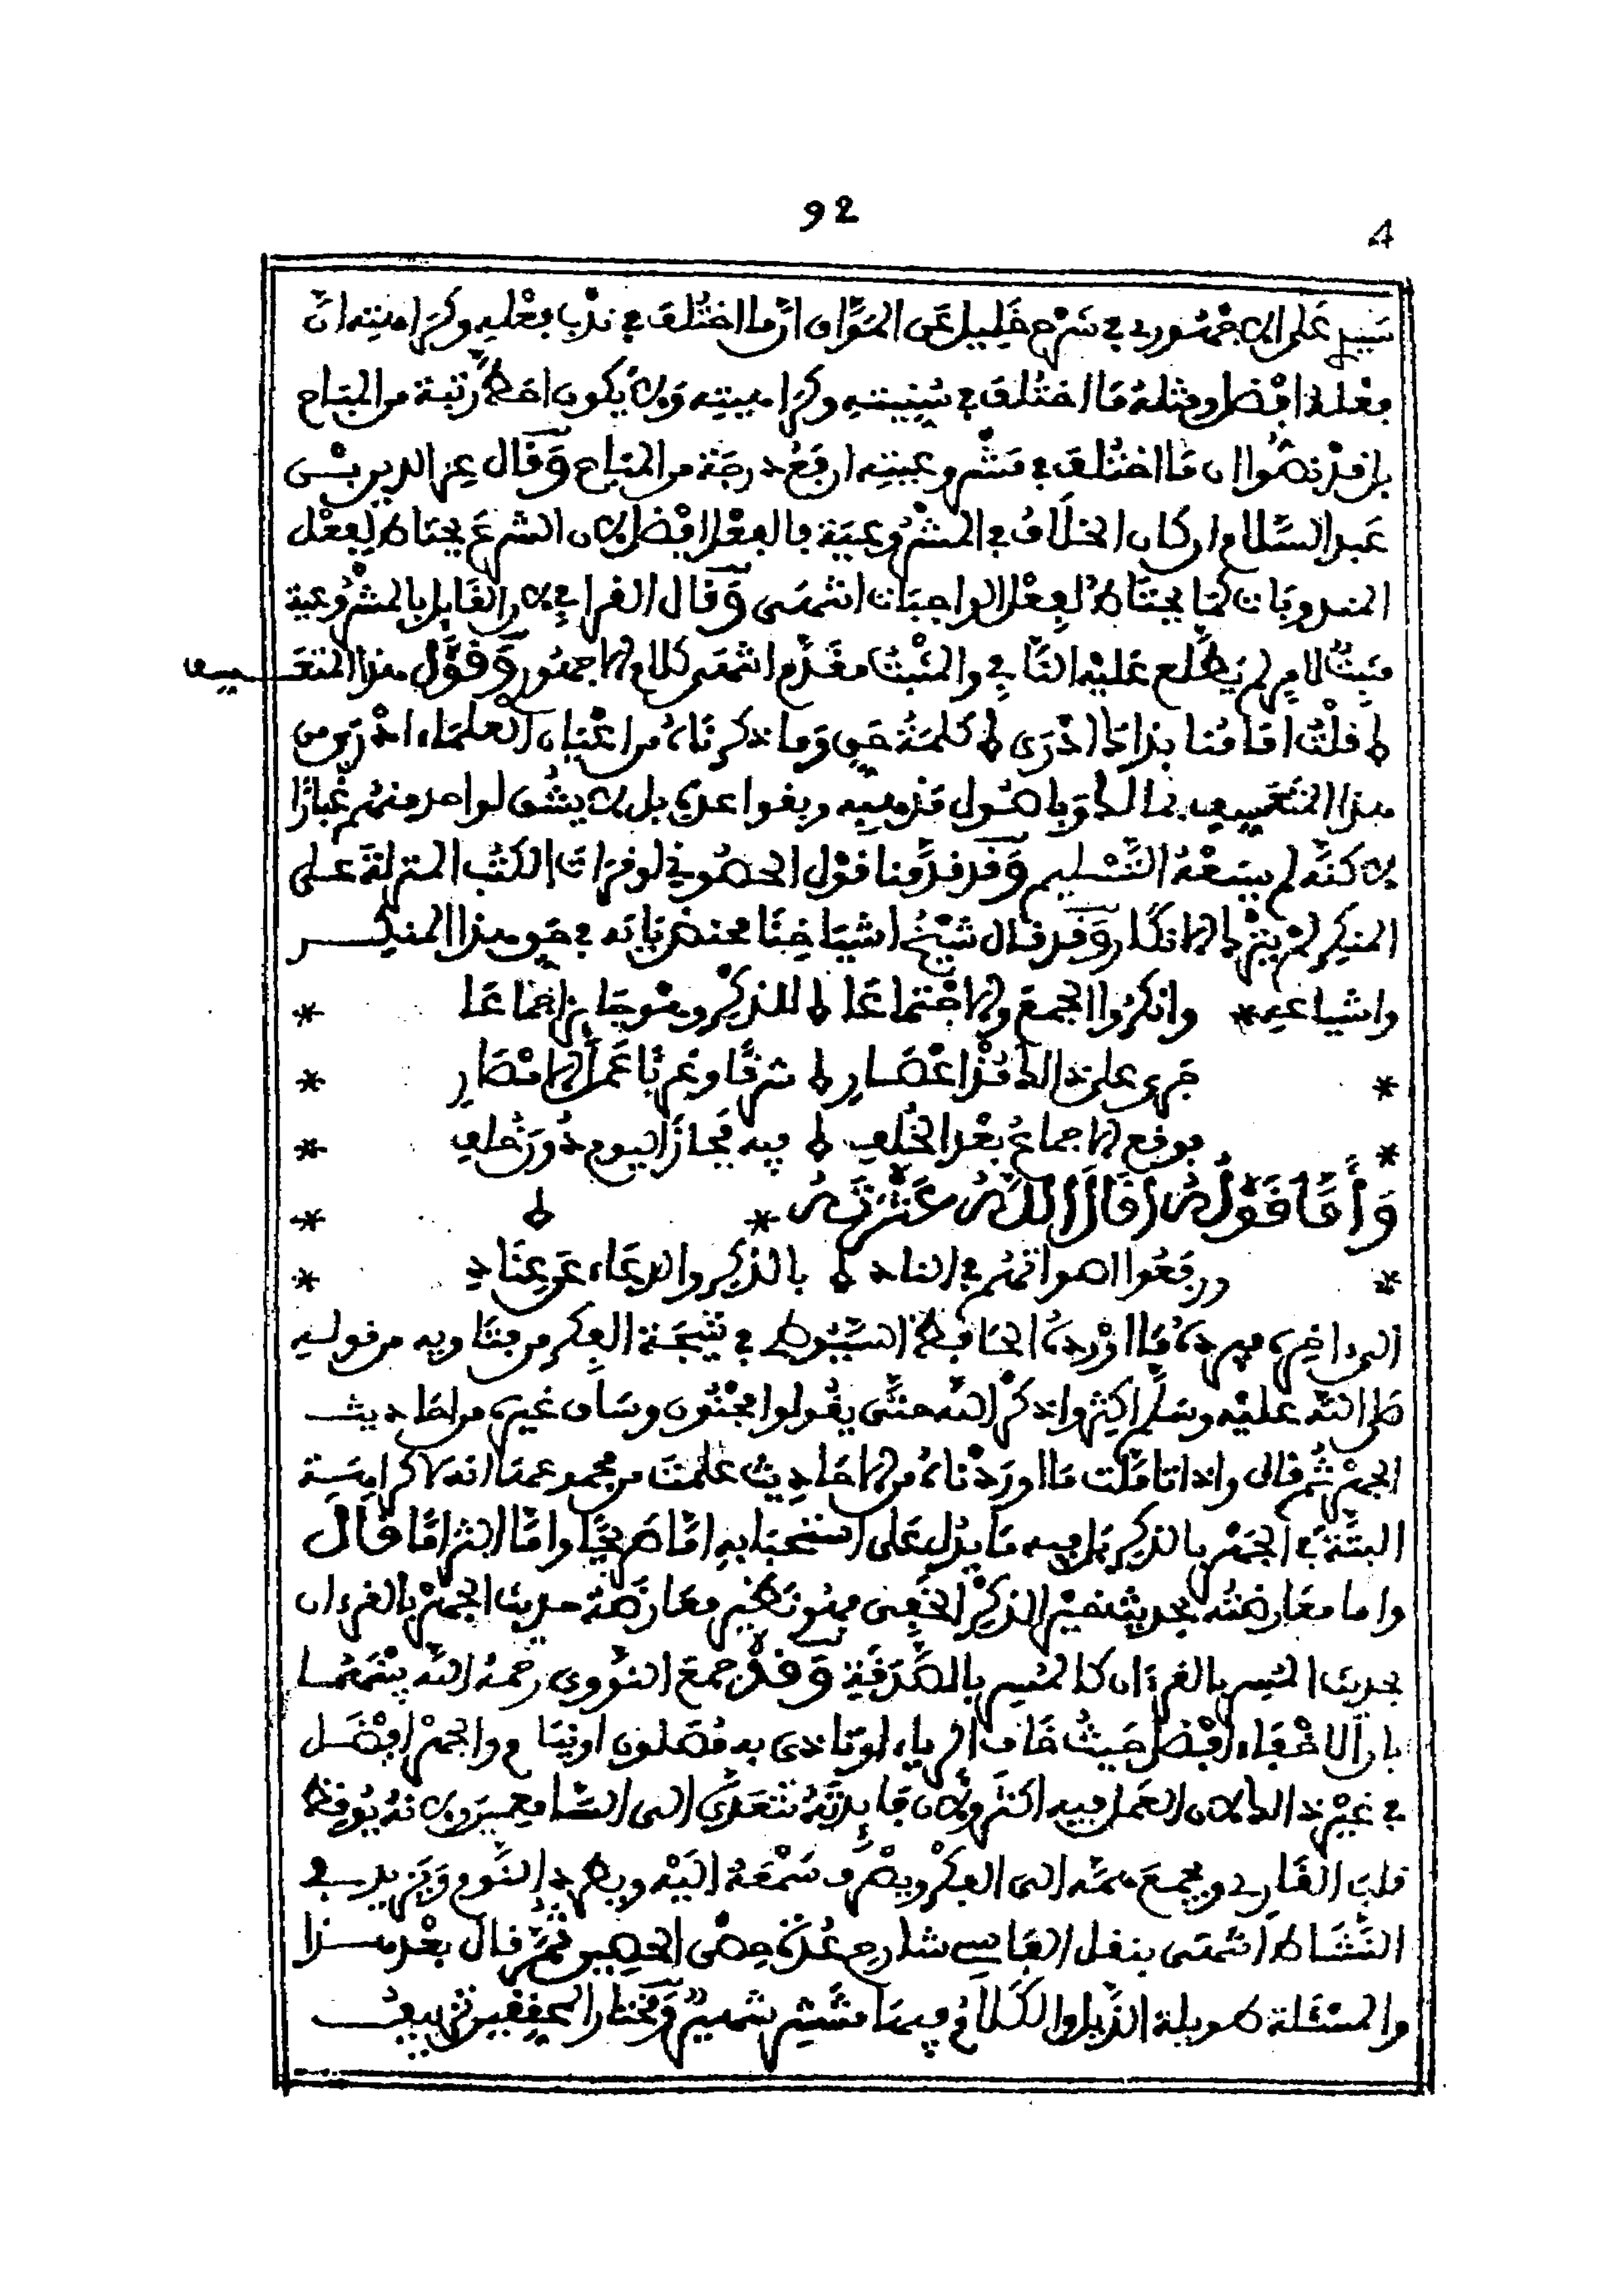 92
4
سيدي علي الاجهوري في شرح خليل عن المواق ان ما اختلف في ندب فعله وكراهيته ان
فعله افضل ومثله ما اختلف في سنيته وكراهيته ولا يكون احط رتبة من المباح
بل قد نصوا ان ما اختلف في مشروعيته ارفع درجة من المباح وقال عز الدين بن
عبد السلام ان كان الخلاف في المشروعية فالفعل افضل لان الشرع يحتاط لفعل
المندوبات كما يحتاط لفعل الواجبات انتهى وقال القرافي لان القايل بالمشروعية
مثبت لامر لم يطلع عليه النافي والمثبت مقدم انتهى كلام الاجهوري وقول هذا المتعسف
قلت اما هنا بذا لا ادرى كلمة حق وما ذكرناه من اعيان العلماء ادرى من
هذا المتعسف بما لك وباصول مذهبه وبقواعده بل لا يشق لواحد منهم غبارا
لاكنه لم يسعه التسليم وقد قدمنا قول الحضرفي لو قرات الكتب المنزلة على
المنكر لم يزد الا انكارا وقد قال شيخ اشياخنا محنض بابه في حق هذا المنكر
واشياعه * وانكروا الجمع والاجتماعا للذكر وهو جايز اجماعا *
* جرى على ذالك مذ اعصار شرقا وغربا عمل الامصار *
* فوقع الاجماع بعد الخلف فيه فجاز اليوم دون خلف *
وأما قوله (قال الله عثرته *
* ورفعوا اصواتهم في الناد بالذكر والدعاء عن عناد *
الى ءاخره فيرده ما اورده الحافظ السيوطي في نتيجة الفكر من فتاويه من قوله
صلى الله عليه وسلم اكثروا ذكر الله حتى يقولوا مجنون وساق غيره من احاديث
الجهر ثم قال واذا تاملت ما اوردناه من الاحاديث علمت من مجموعها انه لا كراهية
البتة في الجهر بالذكر بل فيه ما يدل على استحبابه اما صريحا واما التزاما قال
واما معارضته بحديث خير الذكر الخفي فهو نظير معارضة حديث الجهر بالقرءان
بحديث المسر بالقرءان كالمسر بالصدقة وقد جمع النووي رحمه الله بينهما
بان الاخفاء افضل حيث خاف الرياء او تاذى به مصلون او نيام والجهر افضل
في غير ذالك لان العمل فيه اكثر ولان فايدته تتعدى الى السامعين ولانه يوقظ
قلب القاري ويجمع همه الى الفكر ويصرف سمعه اليه ويطرد النوم ويزيد في
النشاط انتهى بنقل الفاسي شارح عدة حصن الحصين ثم قال بعد هذا
والمسئلة طويلة الذيل والكلام فيها منتشر شهير ومختار المحققين